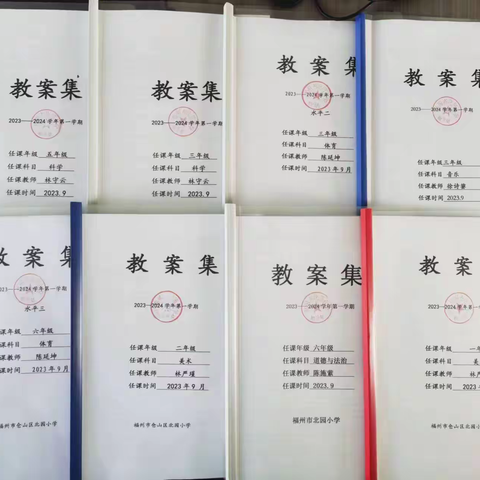 教案集
2023——2024学年第一学期
任课年级 五年级
任课科目 科学
任课教师 林守云
任课时间 2023.9
教案集
2023——2024学年第一学期
任课年级 三年级
任课科目 科学
任课教师 林守云
任课时间 2023.9
教案集
2023——2024学年第一学期
水平二
任课年级 三年级
任课科目 体育
任课教师 陈延坤
任课时间 2023年9月
教案集
2023——2024学年第一学期
任课年级 三年级
任课科目 音乐
任课教师
任课时间 2023.9
教案集
2023——2024学年第一学期
水平三
任课年级 六年级
任课科目 体育
任课教师 陈延坤
任课时间 2023年9月
福州市仓山区北园小学
教案集
2023——2024学年第一学期
任课年级 二年级
任课科目 美术
任课教师 林严瑾
任课时间 2023年9月
福州市仓山区北园小学
教案集
2023——2024学年第一学期
任课年级 六年级
任课科目 道德与法治
任课教师 陈施萦
任课时间 2023.9
福州市北园小学
教案集
2023——2024学年第一
任课年级 一
任课科目 美
任课教师 林严
任课时间 2023年
福州市仓山区北园小学